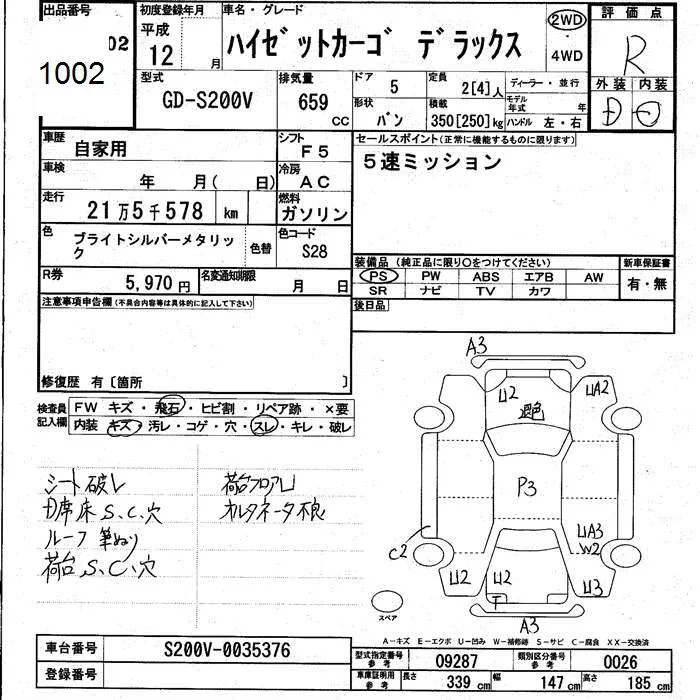 出品番号
02
1002
初度登録年月
平成
12 月
車名・グレード
ハイゼットカーゴ デラックス
2WD
・
4WD
評価点
R
外装 内装
D
型式
GD-S200V
排気量
659
CC
ドア
5
定員
2[4]人
形状
バン
積載
350[250]kg
ディーラー・並行
モデル年式 年
ハンドル 左・右
車歴
自家用
シフト
F5
車検
年 月( 日)
冷房
AC
走行
21万5千578 km
燃料
ガソリン
色
ブライトシルバーメタリック
色替
色コード
S28
R券
5,970円
名変通知期限
月 日
セールスポイント(正常に機能するものに限ります)
5速ミッション
装備品(純正品に限り○をつけてください)
PS PW ABS エアB AW
SR ナビ TV カワ
新車保証書
有・無
後日品
注意事項申告欄(不具合内容等は具体的に記入して下さい)
修復歴 有〔箇所 〕
検査員記入欄
FW キズ・飛石・ヒビ割・リペア跡・×要
内装 キズ・汚レ・コゲ・穴・スレ・キレ・破レ
シート破レ
D席床S.C.穴
ルーフ筆ぬり
荷台S.C.穴
荷台フロアU
オルタネータ不良
A3
U2
退色
UA2
P3
UA3
W2
C2
U2
U2
T
U3
A3
スペア
A-キズ E-エクボ U-凹み W-補修跡 S-サビ C-腐食 XX-交換済
車台番号
S200V-0035376
登録番号
型式指定番号
参考
09287
類別区分番号
参考
0026
車庫証明用
参考
長さ
339cm
幅
147cm
高さ
185cm